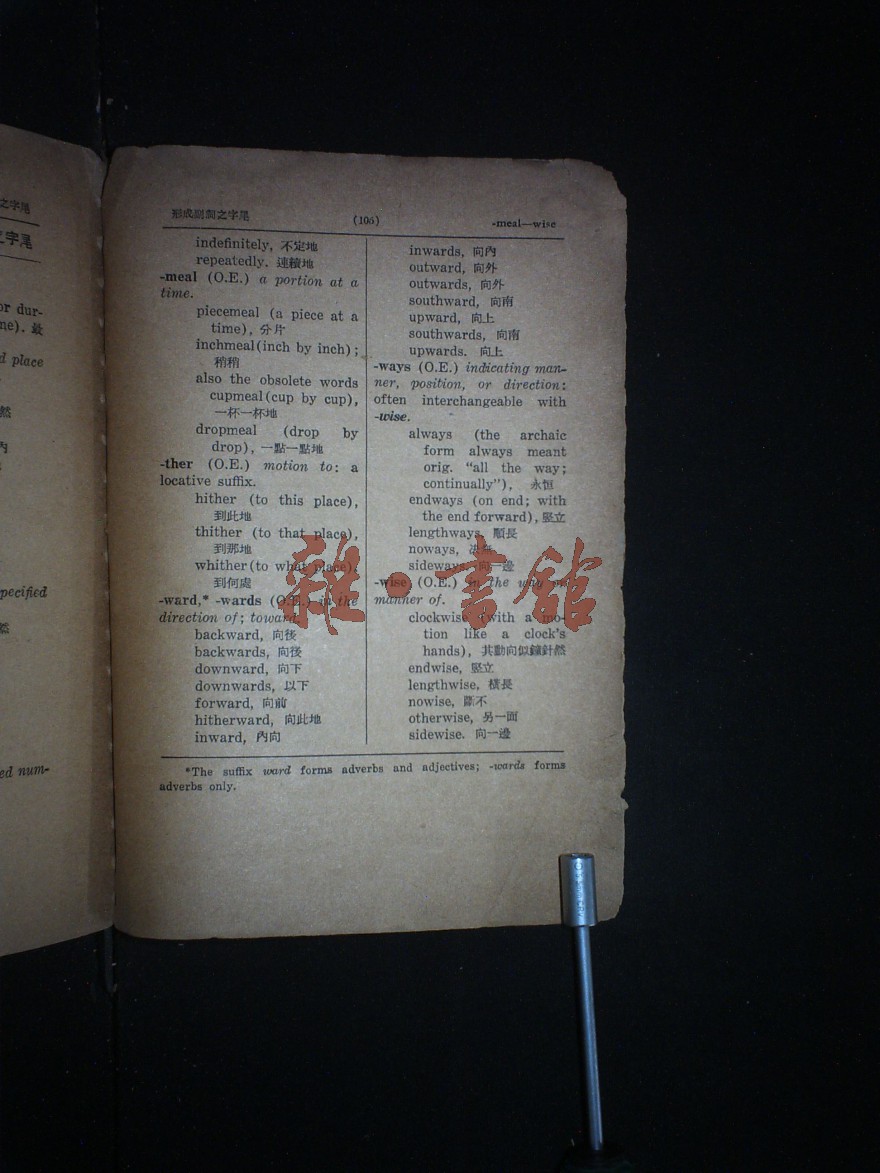 之字尾
之字尾
or dur-
ne). 最
d place
然
內
pecified
然
ed num-
形成副詞之字尾 (106) -meal—wise
indefinitely, 不定地
repeatedly. 連續地
-meal (O.E.) a portion at a
time.
piecemeal (a piece at a
time), 分片
inchmeal(inch by inch);
稍稍
also the obsolete words
cupmeal(cup by cup),
一杯一杯地
dropmeal (drop by
drop), 一點一點地
-ther (O.E.) motion to: a
locative suffix.
hither (to this place),
到此地
thither (to that place),
到那地
whither(to what place).
到何處
-ward,* -wards (O.E.) in the
direction of; toward.
backward, 向後
backwards, 向後
downward, 向下
downwards, 以下
forward, 向前
hitherward, 向此地
inward, 內向
inwards, 向內
outward, 向外
outwards, 向外
southward, 向南
upward, 向上
southwards, 向南
upwards. 向上
-ways (O.E.) indicating man-
ner, position, or direction:
often interchangeable with
-wise.
always (the archaic
form always meant
orig. "all the way;
continually"), 永恒
endways (on end; with
the end forward), 竪立
lengthways, 順長
noways, 決無
sideways. 向一邊
-wise (O.E.) in the way or
manner of.
clockwise (with a mo-
tion like a clock's
hands), 其動向似鐘針然
endwise, 竪立
lengthwise, 橫長
nowise, 斷不
otherwise, 另一面
sidewise. 向一邊
*The suffix ward forms adverbs and adjectives; -wards forms
adverbs only.
雜·書館